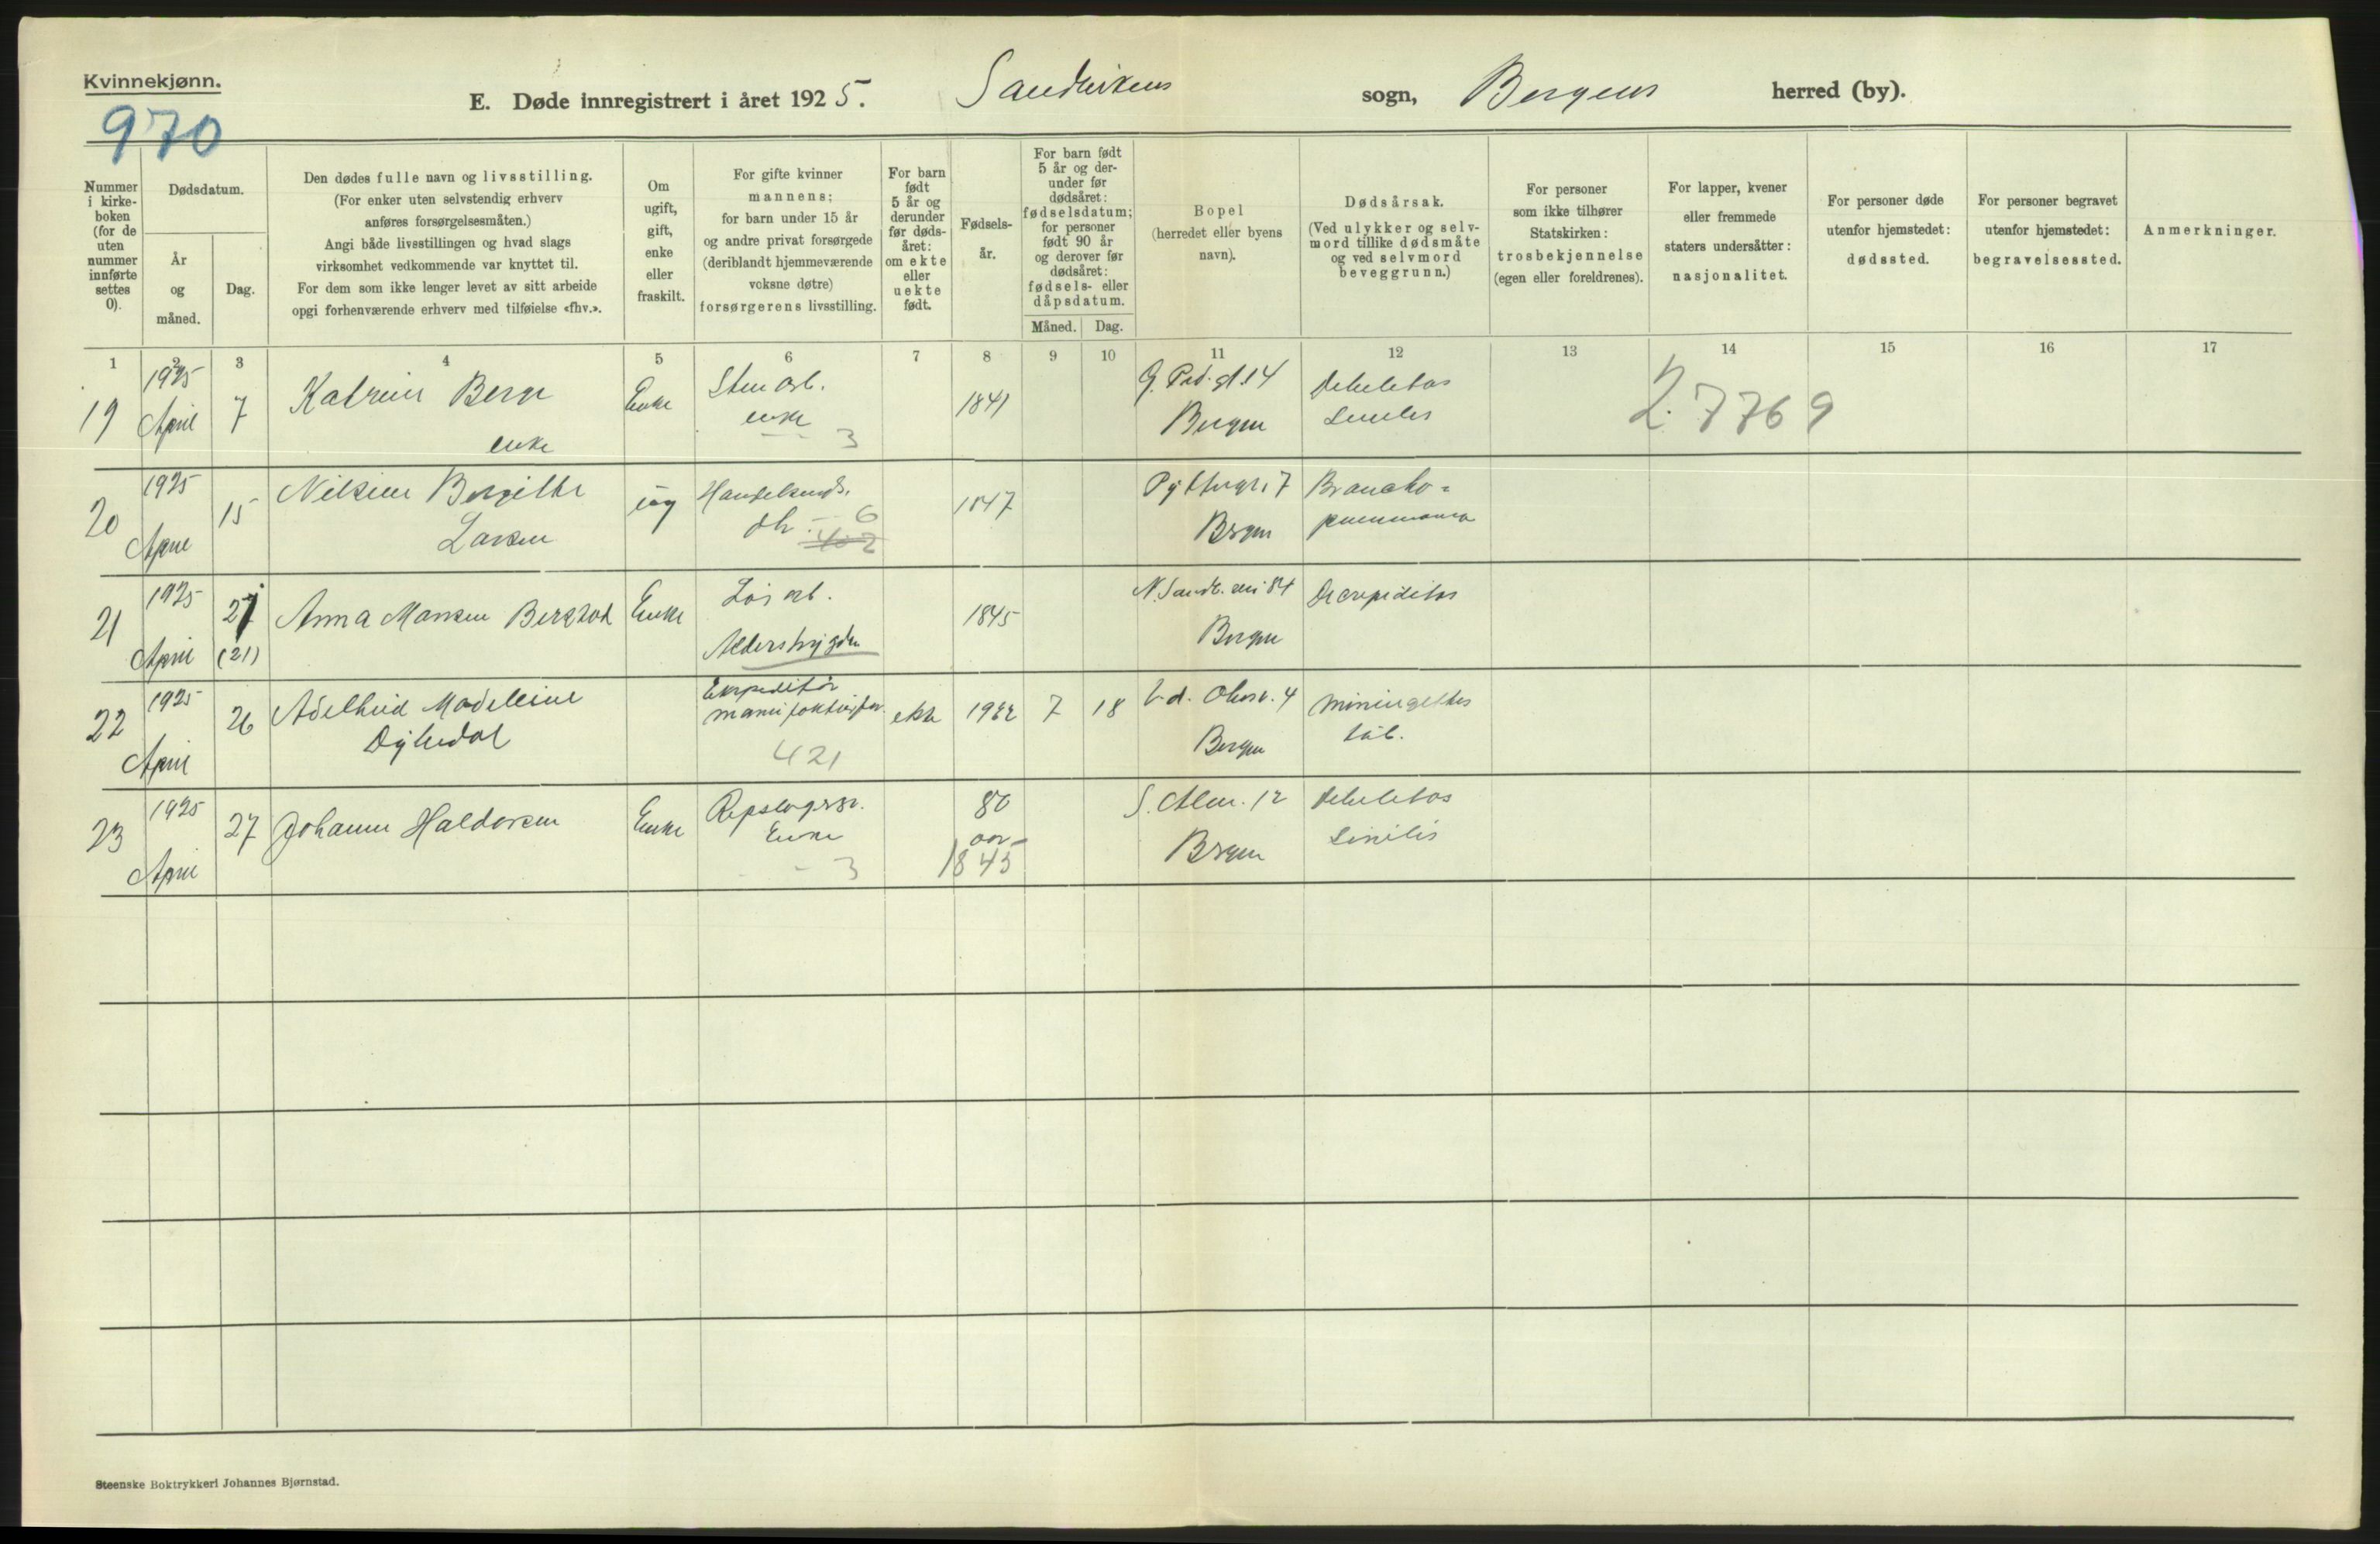 Kvinnekjønn.
970
E. Døde innregistrert i året 1925. Sandvikens sogn, Bergens herred (by).
Nummer
i kirke-
boken
(for de
uten
nummer
innførte
settes
0).
Dødsdatum.
År
og
måned.
Dag.
Den dødes fulle navn og livsstilling.
(For enker uten selvstendig erhverv
anføres forsørgelsesmåten.)
Angi både livsstillingen og hvad slags
virksomhet vedkommende var knyttet til.
For dem som ikke lenger levet av sitt arbeide
opgi forhenværende erhverv med tilføielse «fhv.».
Om
ugift,
gift,
enke
eller
fraskilt.
For gifte kvinner
mannens;
for barn under 15 år
og andre privat forsørgede
(deriblandt hjemmeværende
voksne døtre)
forsørgerens livsstilling.
For barn
født
5 år og
derunder
før døds-
året:
om ekte
eller
uekte
født.
Fødsels-
år.
For barn født
5 år og der-
under før
dødsåret:
fødselsdatum;
for personer
født 90 år
og derover før
dødsåret:
fødsels- eller
dåpsdatum.
Måned. Dag.
Bopel
(herredet eller byens
navn).
Dødsårsak.
(Ved ulykker og selv-
mord tillike dødsmåte
og ved selvmord
beveggrunn.)
For personer
som ikke tilhører
Statskirken:
trosbekjennelse
(egen eller foreldrenes).
For lapper, kvener
eller fremmede
staters undersåtter:
nasjonalitet.
For personer døde
utenfor hjemstedet:
dødssted.
For personer begravet
utenfor hjemstedet:
begravelsessted.
Anmerkninger.
1 2 3 4 5 6 7 8 9 10 11 12 13 14 15 16 17
19 1925 April 7 Katrine Berge Enke Stenarb. 1841 G. Päd. gt. 14 Debilitas
enke enke 3 Bergen senilis
2.7769
20 1925 April 15 Nilsine Bergitte ug Handelsmds. 1847 7 Broncho=
Larsen dtr. 6 Bergen pneumonia
402
21 1925 April 27 (21) Anna Monsen Berstad Enke Løsarb. 1845 N. Sandv. vei 84 Decrepiditas
Alderstrygden Bergen
22 1925 April 26 Adelheid Madeleine Ekspeditør ekte 1922 7 18 4 Miningitis
Dyhedal manufakturfor. Bergen tub.
421
23 1925 April 27 Johanne Haldorsen Enke Repslagersv. 80 S. Alm. 12 Debilitas
Enke aar Bergen Sinilis
3 1845
Steenske Boktrykkeri Johannes Bjørnstad.